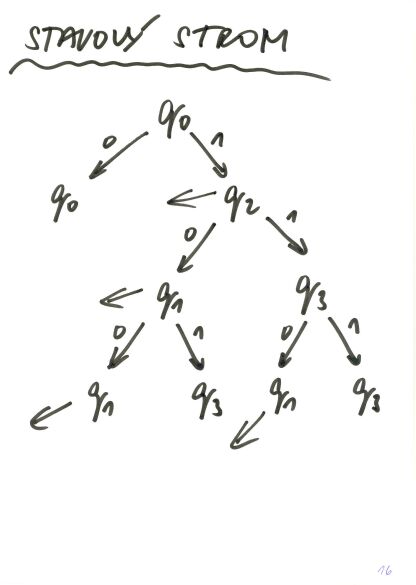 STAVOVÝ STROM
q0
0 1
q0 q2
0 1
q1 q3
0 1 0 1
q1 q3 q1 q3
16